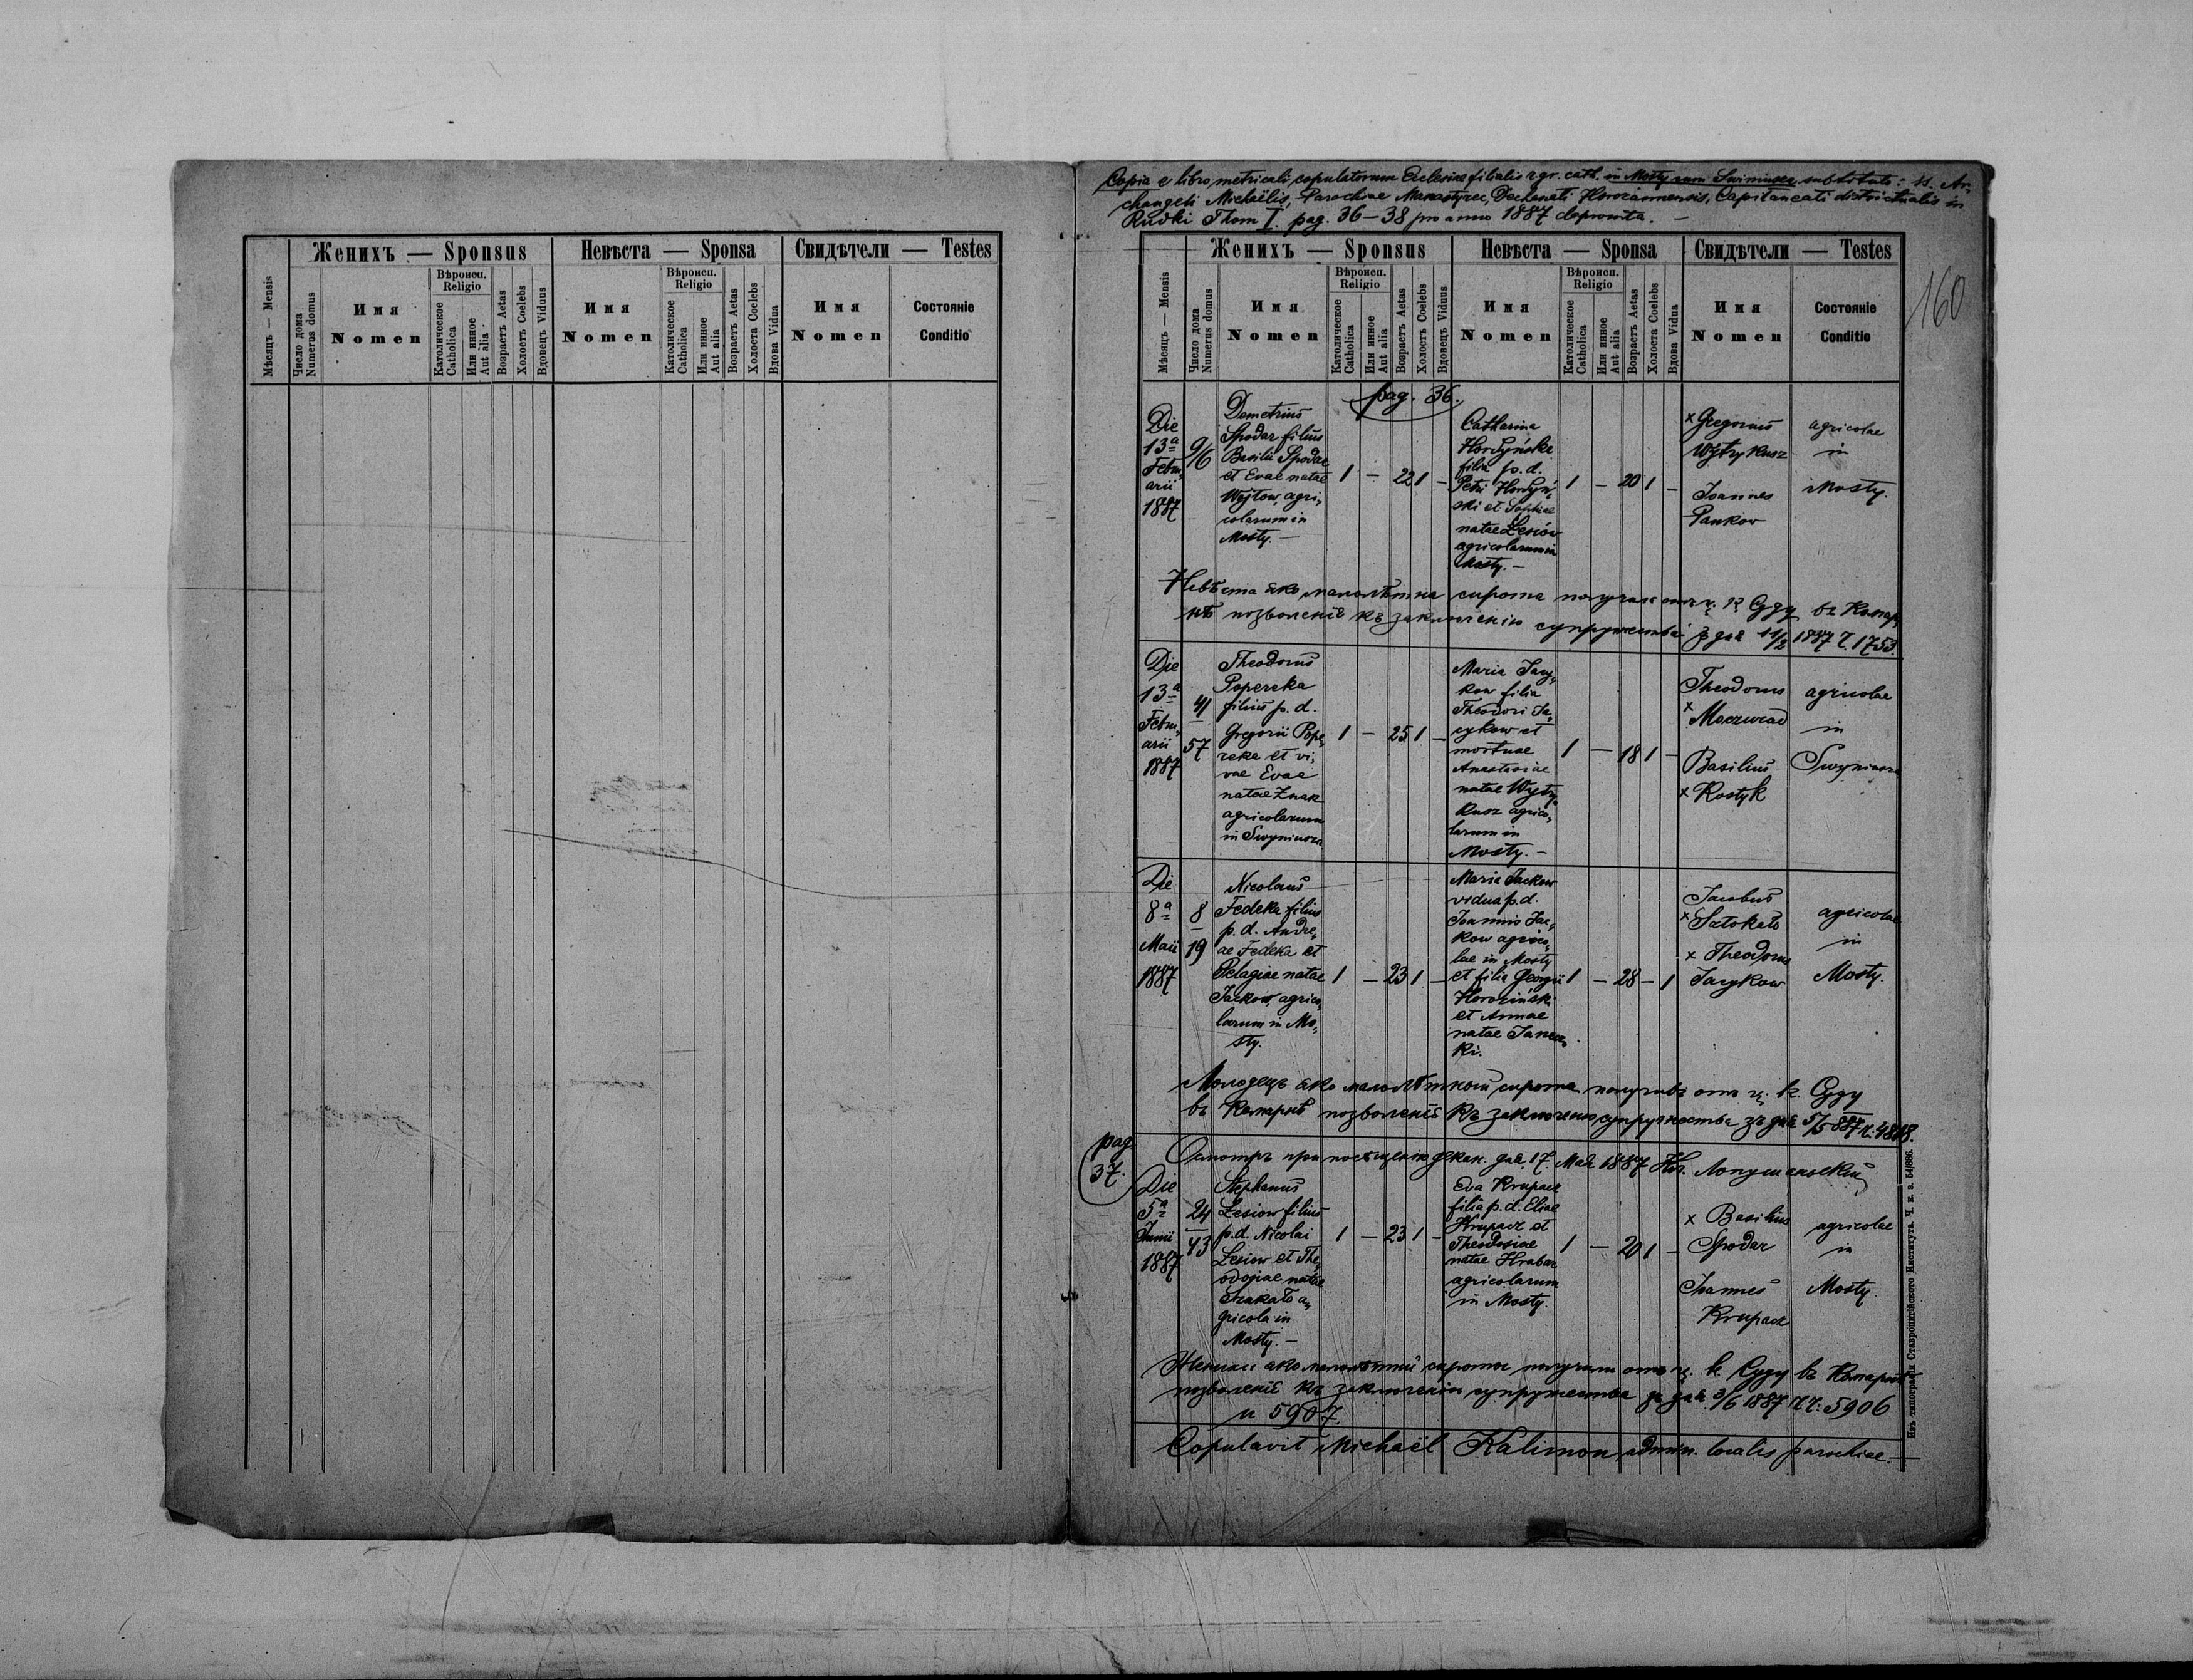 Женихъ — Sponsus
Невѣста — Sponsa
Свидѣтели — Testes
Мѣсяцъ — Mensis
Число дома
Numerus domus
Имя
Nomen
Вѣроисп.
Religio
Католическое
Catholica
Или инное
Aut alia
Возрастъ Aetas
Холостъ Coelebs
Вдовецъ Viduus
Имя
Nomen
Вѣроисп.
Religio
Католическое
Catholica
Или инное
Aut alia
Возрастъ Aetas
Холоста Coelebs
Вдова Vidua
Имя
Nomen
Состоянie
Conditio
Copia e libro metricali copulatorum Ecclesiae filialis r. gr. cath. in Mosty cum substituti: SS. Ar-
changeli Michaëlis, Parochiae Manastyrec, Decanati Horożannensis, Capitaneati districtualis in
Rudki Thom I. pag. 36–38 pro anno 1887 deprompta. —
160
Женихъ — Sponsus
Невѣста — Sponsa
Свидѣтели — Testes
Мѣсяцъ — Mensis
Число дома
Numerus domus
Имя
Nomen
Вѣроисп.
Religio
Католическое
Catholica
Или инное
Aut alia
Возрастъ Aetas
Холостъ Coelebs
Вдовецъ Viduus
Имя
Nomen
Вѣроисп.
Religio
Католическое
Catholica
Или инное
Aut alia
Возрастъ Aetas
Холоста Coelebs
Вдова Vidua
Имя
Nomen
Состоянie
Conditio
pag. 36.
Die
13ª
Febru,
arii
1887
9/6
Demetrius
Spodar filius
Basilii Spodar
et Evae natae
Wojtow, agri,
colarum in
Mosty. —
1 — 22 1 —
Catharina
Hordyńska
filia p. d.
Petri Hordyń,
ski et Sophiae
natae Lesiów
agricolarum in
Mosty. —
1 — 20 1 —
× Gregorius
Wytrykusz
Joannes
Pankow
agricolae
in
Mosty.
Невѣста яко малолѣтна сирота получила отъ ц. к. Суду въ Комар,
нѣ позволенiе къ заключенiю супружества зъ дня 11/2 1887 Ч. 1753.
Die
13ª
Febru,
arii
1887
41
57
Theodorus
Popereka
filius p. d.
Gregorii Pope,
reka et vi,
vae Evae
natae Znak
agricolarum
in
1 — 25 1 —
Maria Jacy,
kow filia
Theodori Ja,
cykow et
mortuae
Anastasiae
natae Wytry,
kusz agrico,
larum in
Mosty. —
1 — 18 1 —
Theodorus
×
Basilius
× Kostyk
agricolae
in
Die
8ª
Maii
1887
8
19
Nicolaus
Fedeka filius
p. d. Andre,
ae Fedeka et
Pelagiae natae
Jackow agrico,
larum in Mo,
sty.
1 — 23 1 —
Maria Jackow
vidua p. d.
Joannis Jac,
kow agrico,
lae in Mosty
et filia Georgii
et Annae
natae
ki.
1 — 28 — 1
Jacobus
×
× Theodorus
Jacykow
agricolae
in
Mosty.
Молодецъ яко малолѣтный сирота получивъ отъ ц. к. Суду
въ Комарнѣ позволенiе къ заключенiю супружества зъ дня 5/5 887 ч. 4818.
pag
37.
Осмотръ при посѣщенiю декан. дня 17. Мая 1887
Die
5ª
Junii
1887
24
43
Stephanus
Lesiow filius
p. d. Nicolai
Lesiow et The,
odosiae natae
Szakało a,
gricola in
Mosty. —
1 — 23 1 —
Eva Krupacz
filia p. d. Eliae
Krupacz et
Theodosiae
natae Hrabar
agricolarum
in Mosty.
1 — 20 1 —
× Basilius
Spodar
Joannes
Krupacz
agricolae
in
Mosty.
яко малолѣтнiи сироты получили отъ ц. к. Суду въ Комарнѣ
позволенiе къ заключенiю супружества зъ дня 3/6 1887 Ч.Ч: 5906
и 5907.
Copulavit Michaël Kalimon, admin. localis parochiae. —
Изъ типографiи Ставропигiйского Института. Ч. к. з. 54/886.